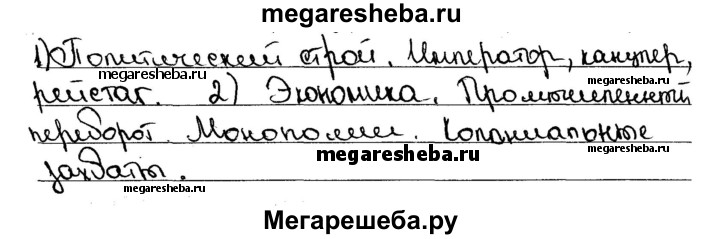 megaresheba.ru
1) Политический строй. Император, канцлер,
megaresheba.ru
megaresheba.ru
рейстаг. 2) Экономика. Промышленный
переворот. Монополии. Колониальные
megaresheba.ru
захваты.
megaresheba.ru
megaresheba.ru
Мегарешеба.ру